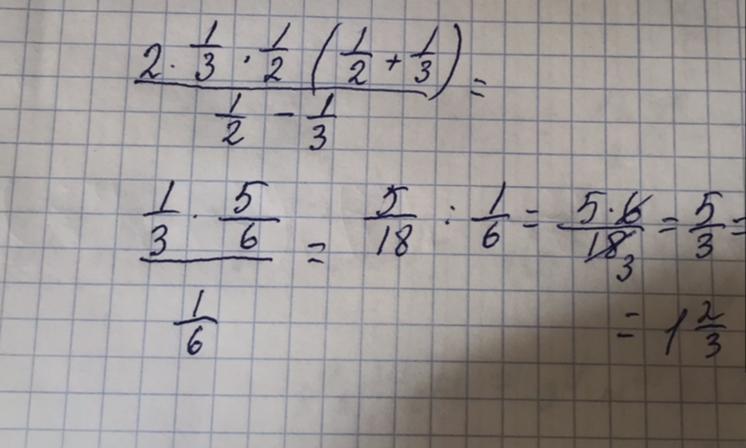 (2 · 1/3 · 1/2 (1/2 + 1/3)) / (1/2 − 1/3) =
(1/3 · 5/6) / (1/6) = 5/18 : 1/6 = 5·6/18 3 = 5/3 =
= 1 2/3